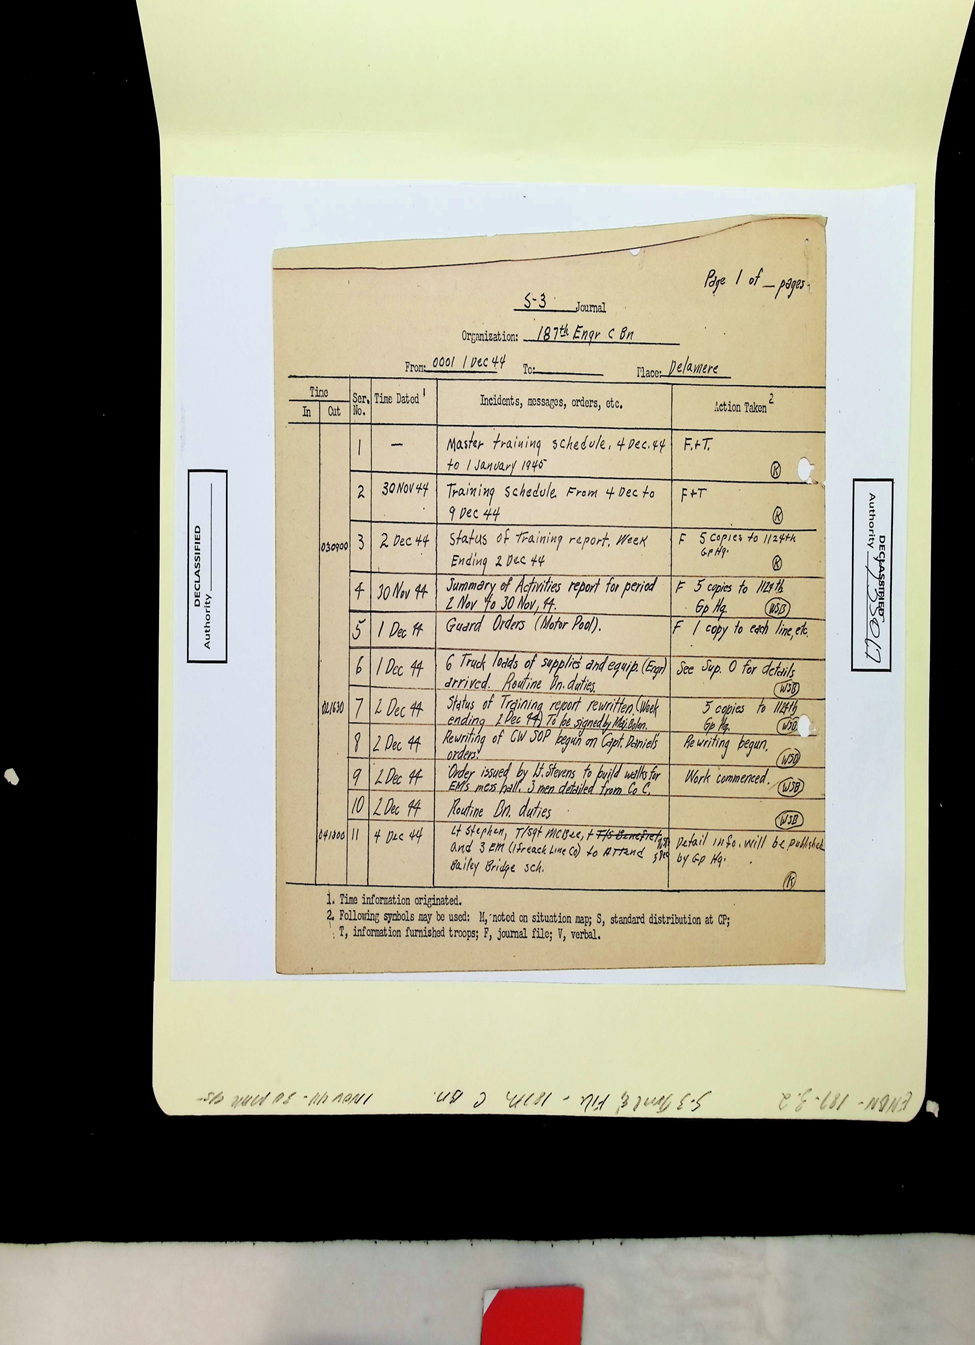 Page 1 of _ pages.
S-3 Journal
Organization: 187th Engr C Bn
From: 0001 1 Dec 44 To: Place: Delamere
Time
In Out
Ser. No.
Time Dated 1
Incidents, messages, orders, etc.
Action Taken 2
1 — Master training schedule. 4 Dec. 44 F.+T.
to 1 January 1945 K
2 30 Nov 44 Training Schedule From 4 Dec to F+T
9 Dec 44 K
030900 3 2 Dec 44 Status of Training report. Week F 5 copies to 1124th
Gp Hq.
Ending 2 Dec 44 K
4 30 Nov 44 Summary of Activities report for period F 5 copies to 1124th
2 Nov to 30 Nov, 44. Gp Hq. WSB
5 1 Dec 44 Guard Orders (Motor Pool). F 1 copy to each line, etc.
6 1 Dec 44 6 Truck loads of supplies and equip. (Engr) See Sup. O for details
arrived. Routine Dn. duties. WSB
021630 7 2 Dec 44 Status of Training report rewritten (Week 5 copies to 1124th
ending 2 Dec 44) To be signed by Maj. Gp Hq. WSB
8 2 Dec 44 Rewriting of CW SOP begun on Capt. Daniel's Rewriting begun.
orders. WSB
9 2 Dec 44 Order issued by Lt. Stevens to build walks for Work commenced.
EM's mess hall. 3 men detailed from Co C. WSB
10 2 Dec 44 Routine Dn. duties WSB
041800 11 4 Dec 44 Lt Stephen, T/Sgt McBee, + T/5 Detail info. will be published
and 3 EM (1 from each Line Co) to Attend by Gp Hq.
Bailey Bridge sch. K
1. Time information originated.
2. Following symbols may be used: M, noted on situation map; S, standard distribution at CP;
T, information furnished troops; F, journal file; V, verbal.
DECLASSIFIED
Authority
DECLASSIFIED
Authority
ENBN - 187 - 3.2 S-3 Jnl & File - 187th C Bn. 1 Nov 44 - 30 Mar 45